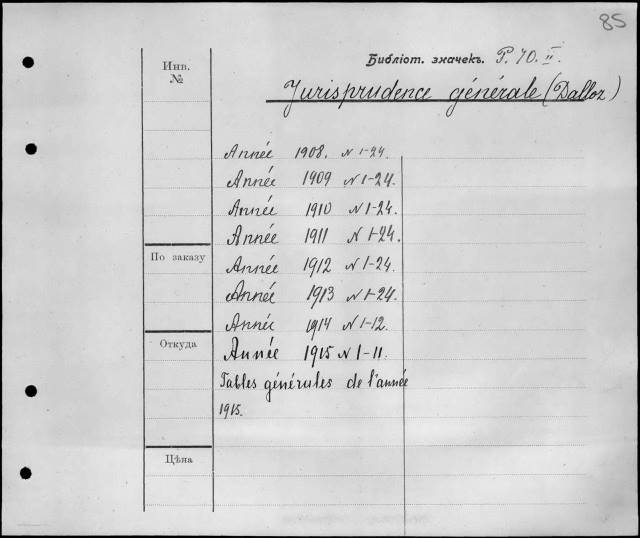 85
Библіот. значекъ. P. 70. II.
Инв.
№
Jurisprudence générale (Dalloz)
Année 1908. N 1-24.
Année 1909 N 1-24.
Année 1910 N 1-24.
Année 1911 N 1-24.
По заказу
Année 1912 N 1-24.
Année 1913 N 1-24.
Année 1914 N 1-12.
Откуда
Année 1915 N 1-11.
Tables générales de l'année
1915.
Цѣна